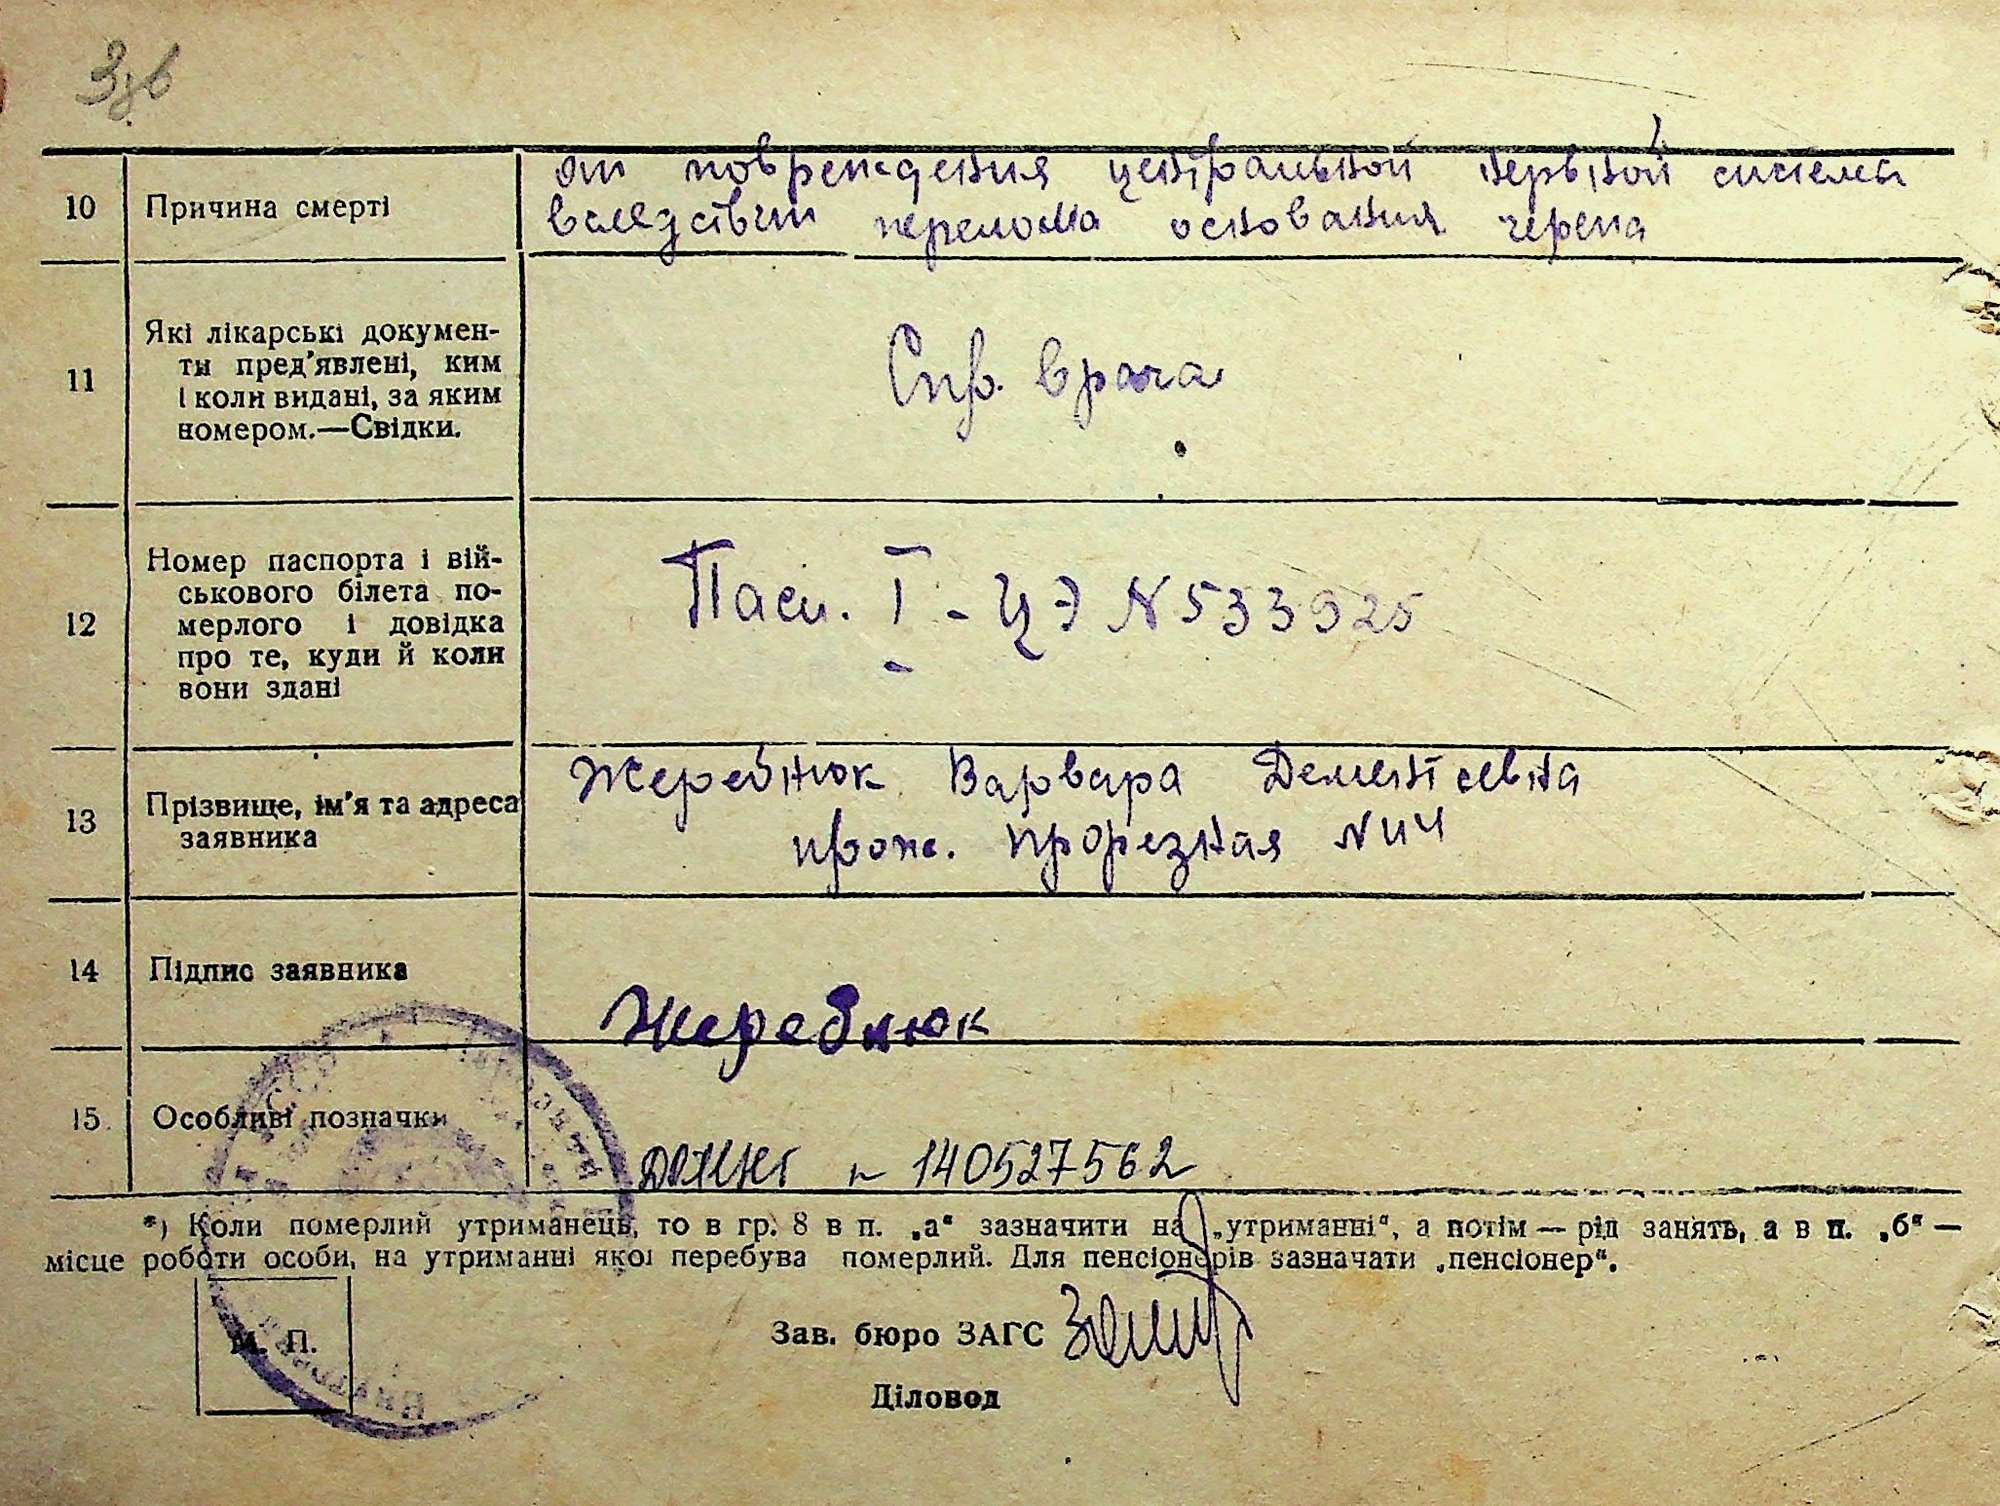 3зв
10 Причина смерті
от повреждения центральной нервной системы
вследствии перелома основания черепа
11 Які лікарські докумен-
ти пред’явлені, ким
і коли видані, за яким
номером.—Свідки.
Спр. врача
12 Номер паспорта і вій-
ськового білета по-
мерлого і довідка
про те, куди й коли
вони здані
Пасп. I - ЦЭ N 533925
13 Прізвище, ім’я та адреса
заявника
Жеребнюк Варвара Дементьевна
прож. Прорезная N 114
14 Підпис заявника
Жеребнюк
15 Особливі позначки
N 140527562
*) Коли померлий утриманець, то в гр. 8 в п. „а“ зазначити на „утриманні“, а потім — рід занять, а в п. „б“ —
місце роботи особи, на утриманні якої перебува померлий. Для пенсіонерів зазначати „пенсіонер“.
М. П.
Зав. бюро ЗАГС
Діловод